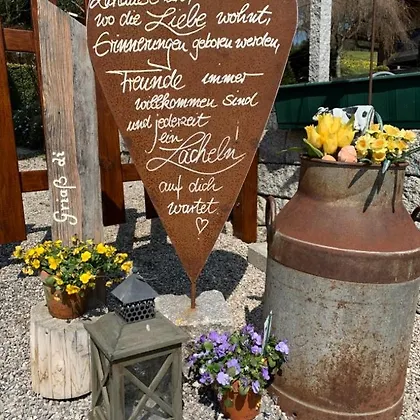 wo die Liebe wohnt,
Erinnerungen geboren werden,
Freunde immer
willkommen sind
und jederzeit
ein
Lächeln
auf dich
wartet
Griaß di